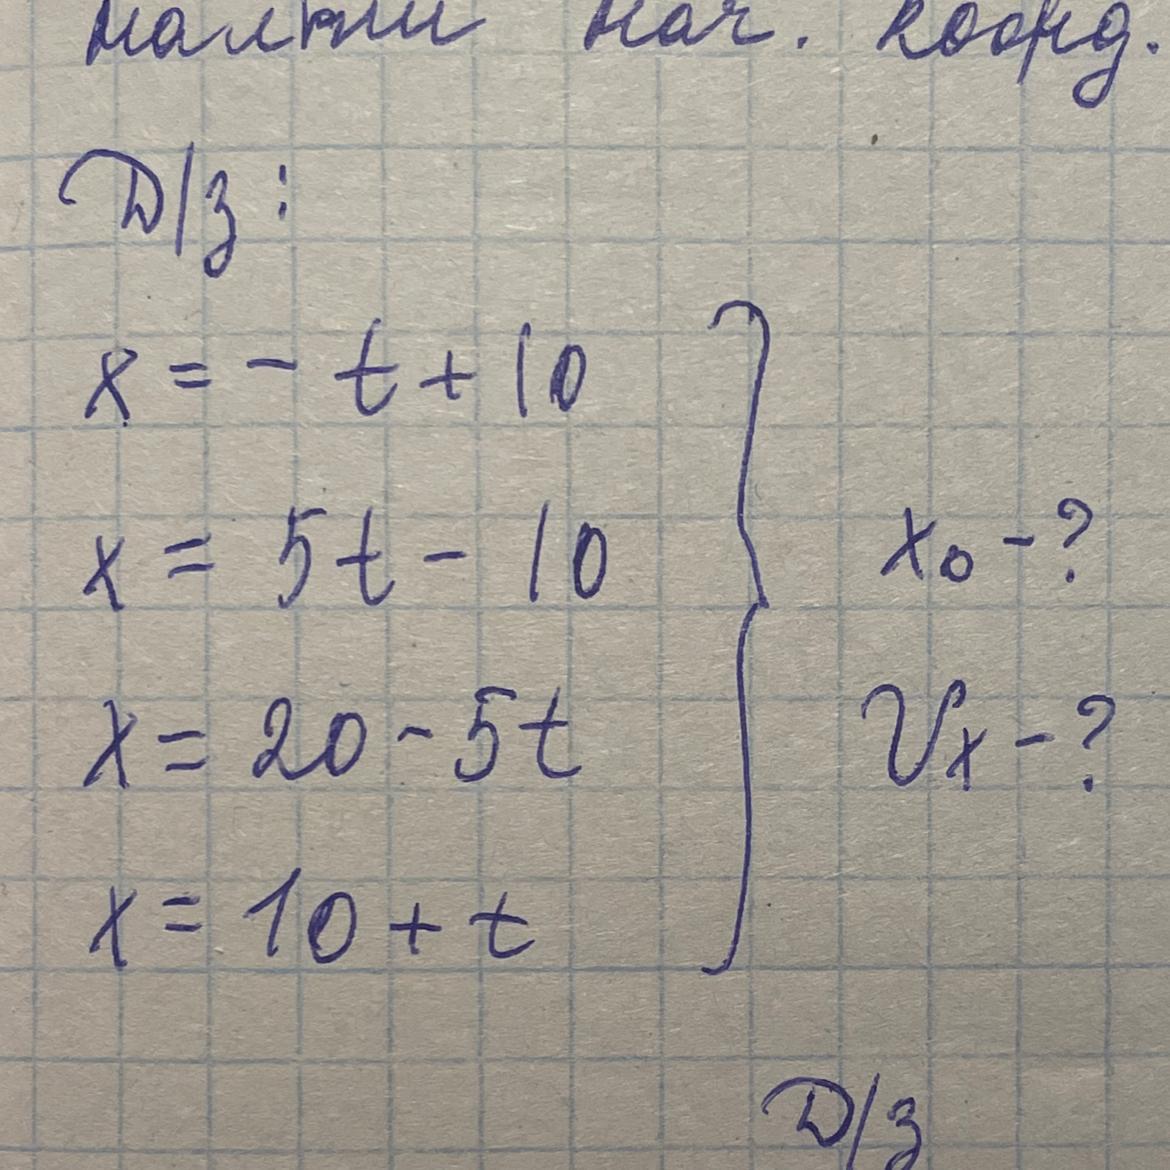 найти нач. коорд.
Д/з:
x = - t + 10
x = 5t - 10
x₀ - ?
x = 20 - 5t
Vx - ?
x = 10 + t
Д/з